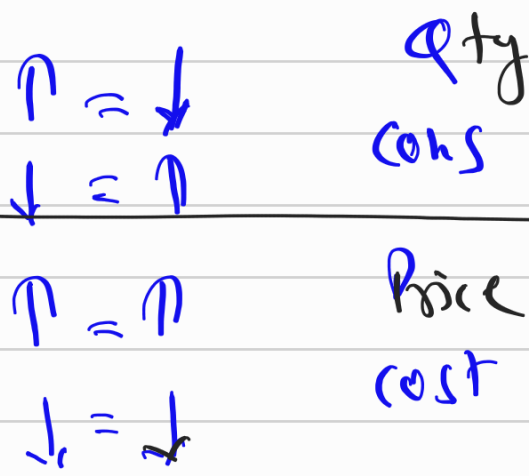 ↑ = ↓ Qty
↓ = ↑ cons
↑ = ↑ Price
↓ = ↓ cost